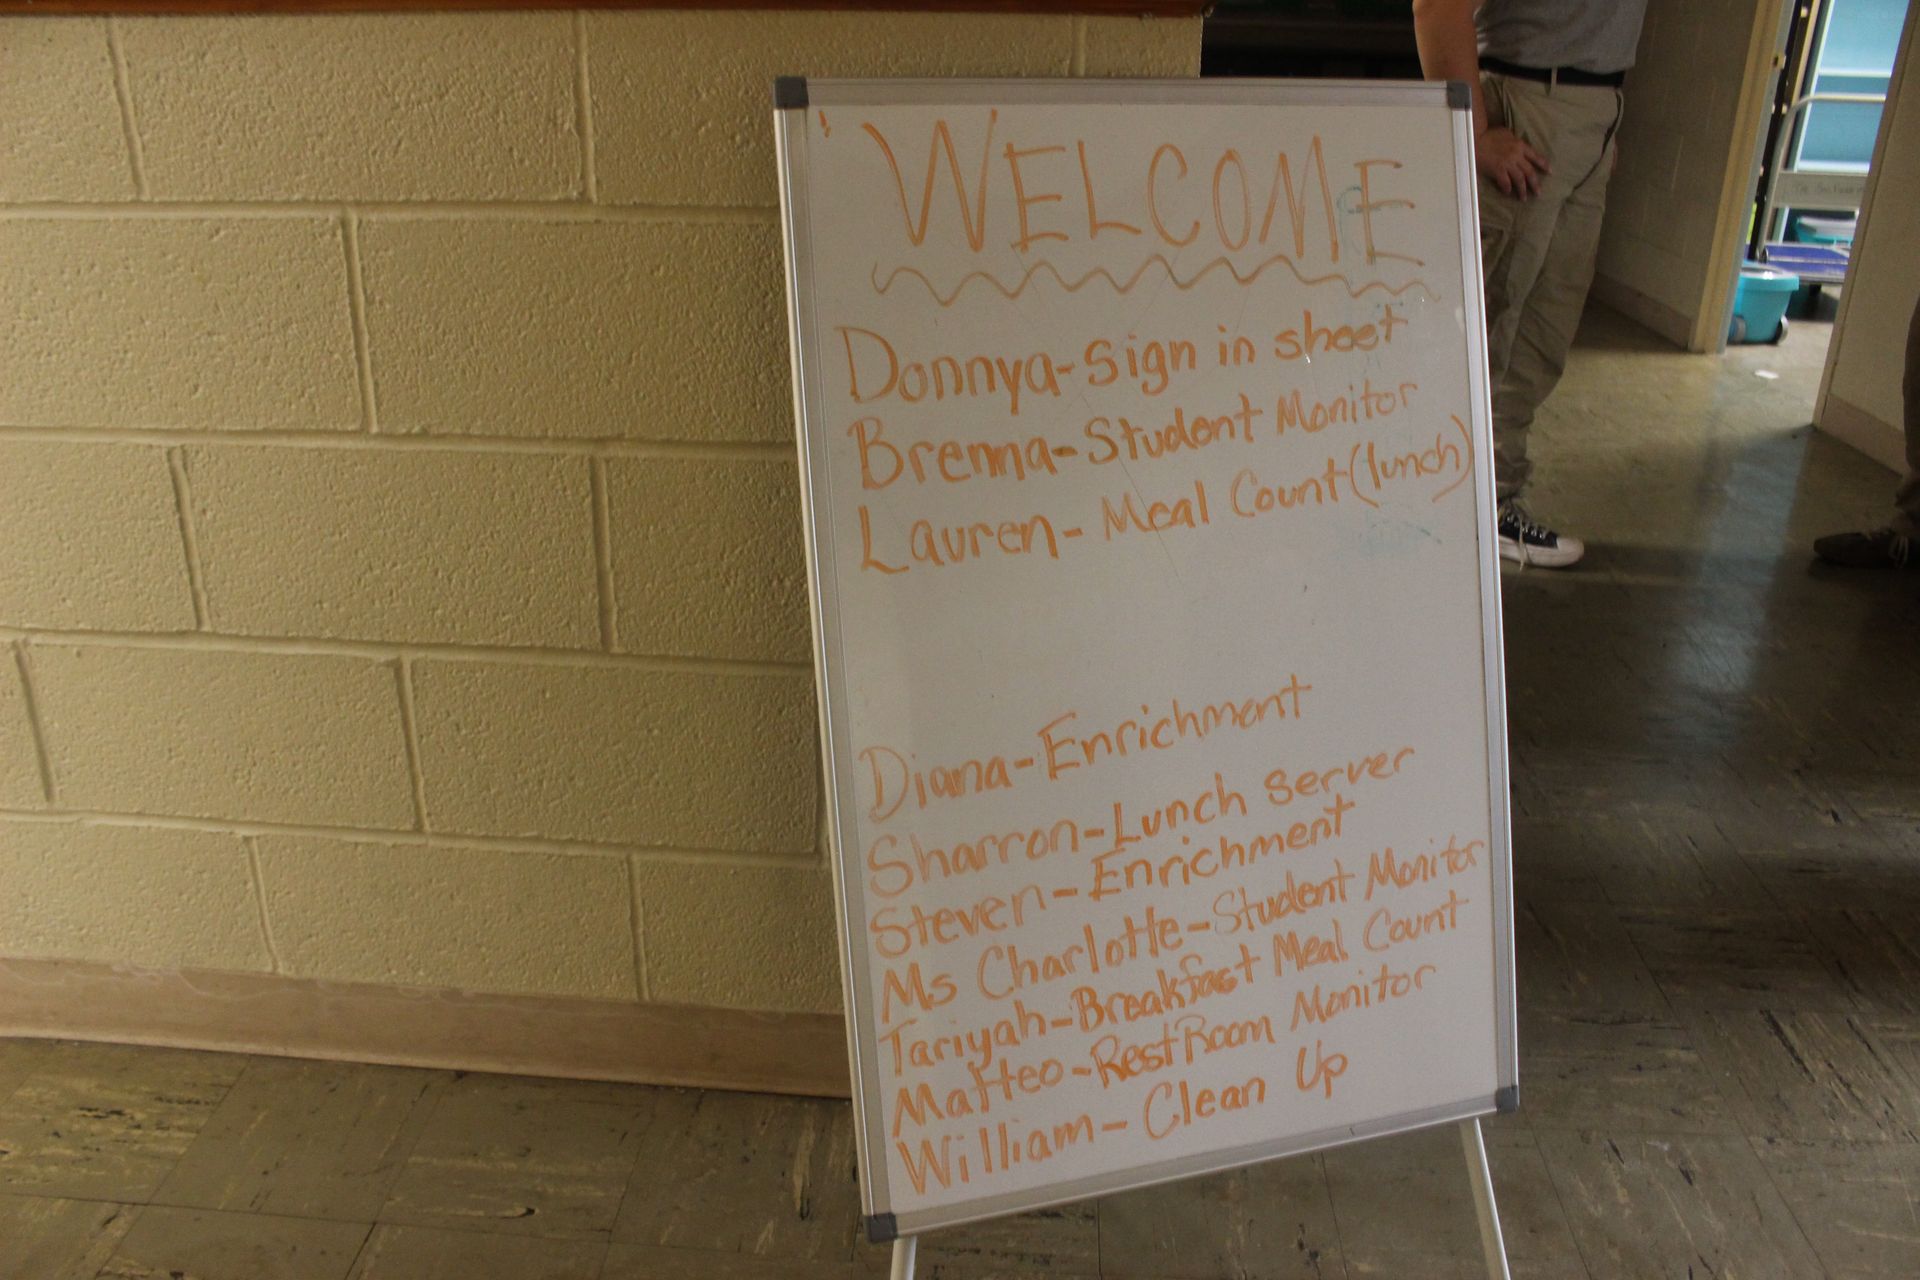 WELCOME
Donnya-Sign in sheet
Brenna-Student Monitor
Lauren-Meal Count (lunch)
Diana-Enrichment
Sharron-Lunch Server
Steven-Enrichment
Ms Charlotte-Student Monitor
Tariyah-Breakfast Meal Count
Matteo-RestRoom Monitor
William-Clean Up